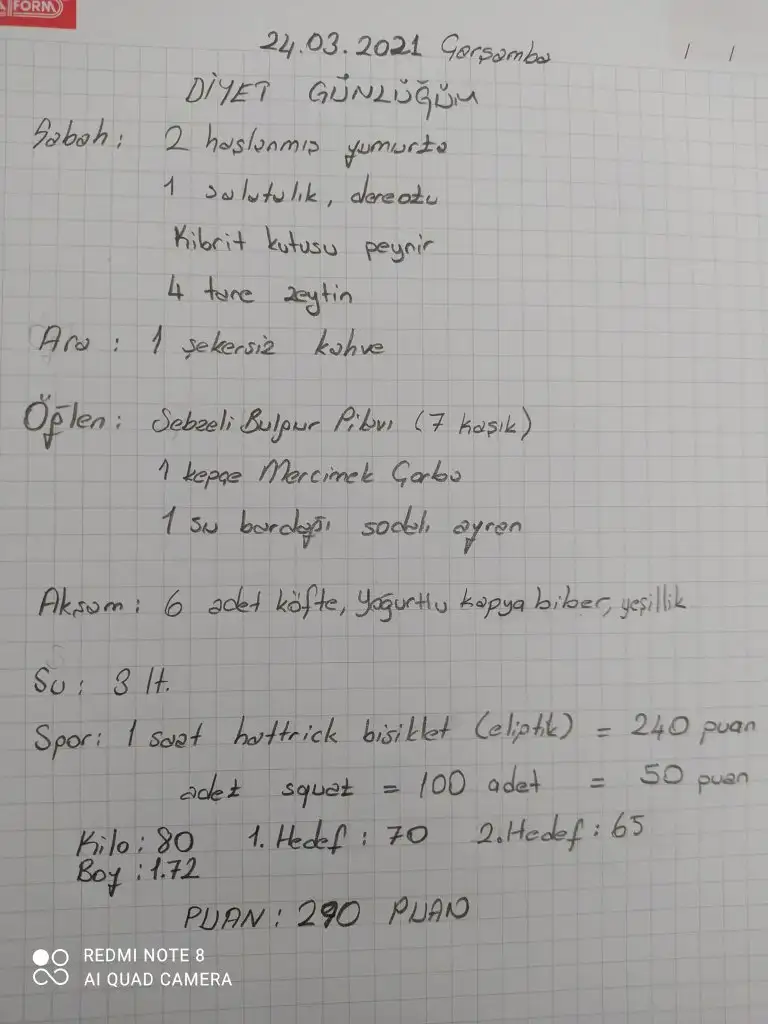 FORM
24.03.2021 Çarşamba
DİYET GÜNLÜĞÜM
Sabah: 2 haşlanmış yumurta
1 salatalık, dereotu
Kibrit kutusu peynir
4 tane zeytin
Ara: 1 şekersiz kahve
Öğlen: Sebzeli Bulgur Pilavı (7 kaşık)
1 kepçe Mercimek Çorba
1 su bardağı sodalı ayran
Akşam: 6 adet köfte, Yoğurtlu kapya biber, yeşillik
Su: 3 lt.
Spor: 1 saat hattrick bisiklet (eliptik) = 240 puan
adet squat = 100 adet = 50 puan
Kilo: 80 1. Hedef: 70 2. Hedef: 65
Boy: 1.72
PUAN: 290 PUAN
REDMI NOTE 8
AI QUAD CAMERA